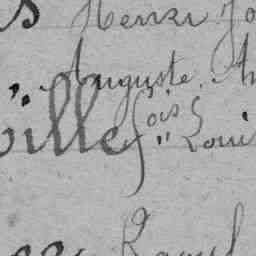 s Henri Jo
„ Auguste. A
ville fois „ Loui
Raoul